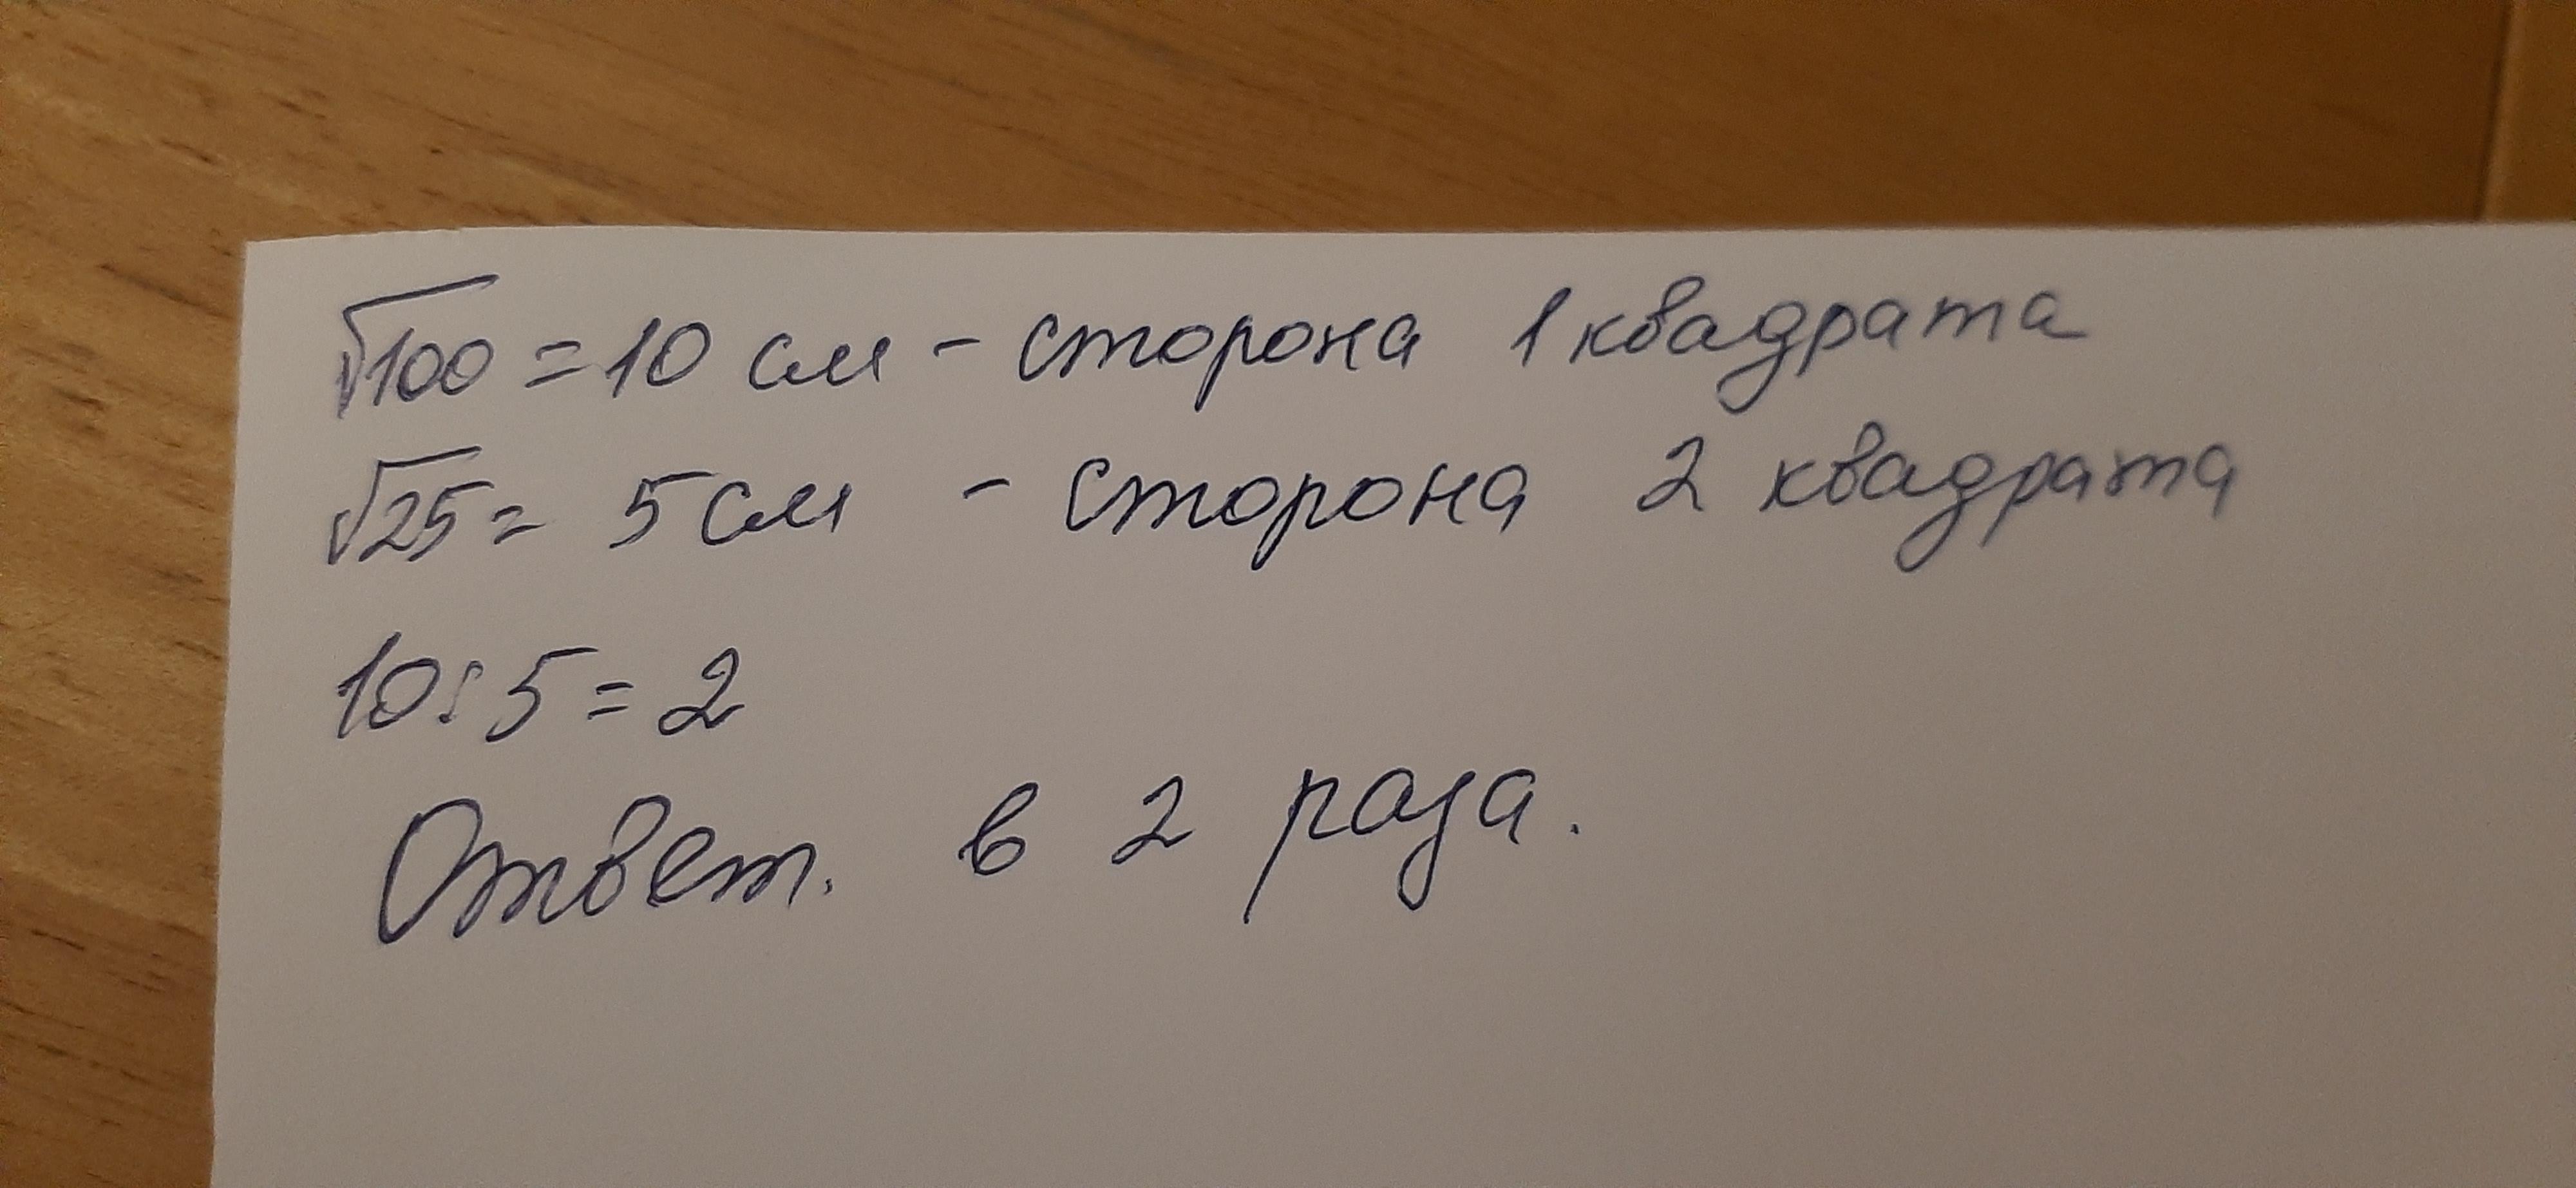 √100 = 10 см - сторона 1 квадрата
√25 = 5 см - сторона 2 квадрата
10 : 5 = 2
Ответ. в 2 раза.